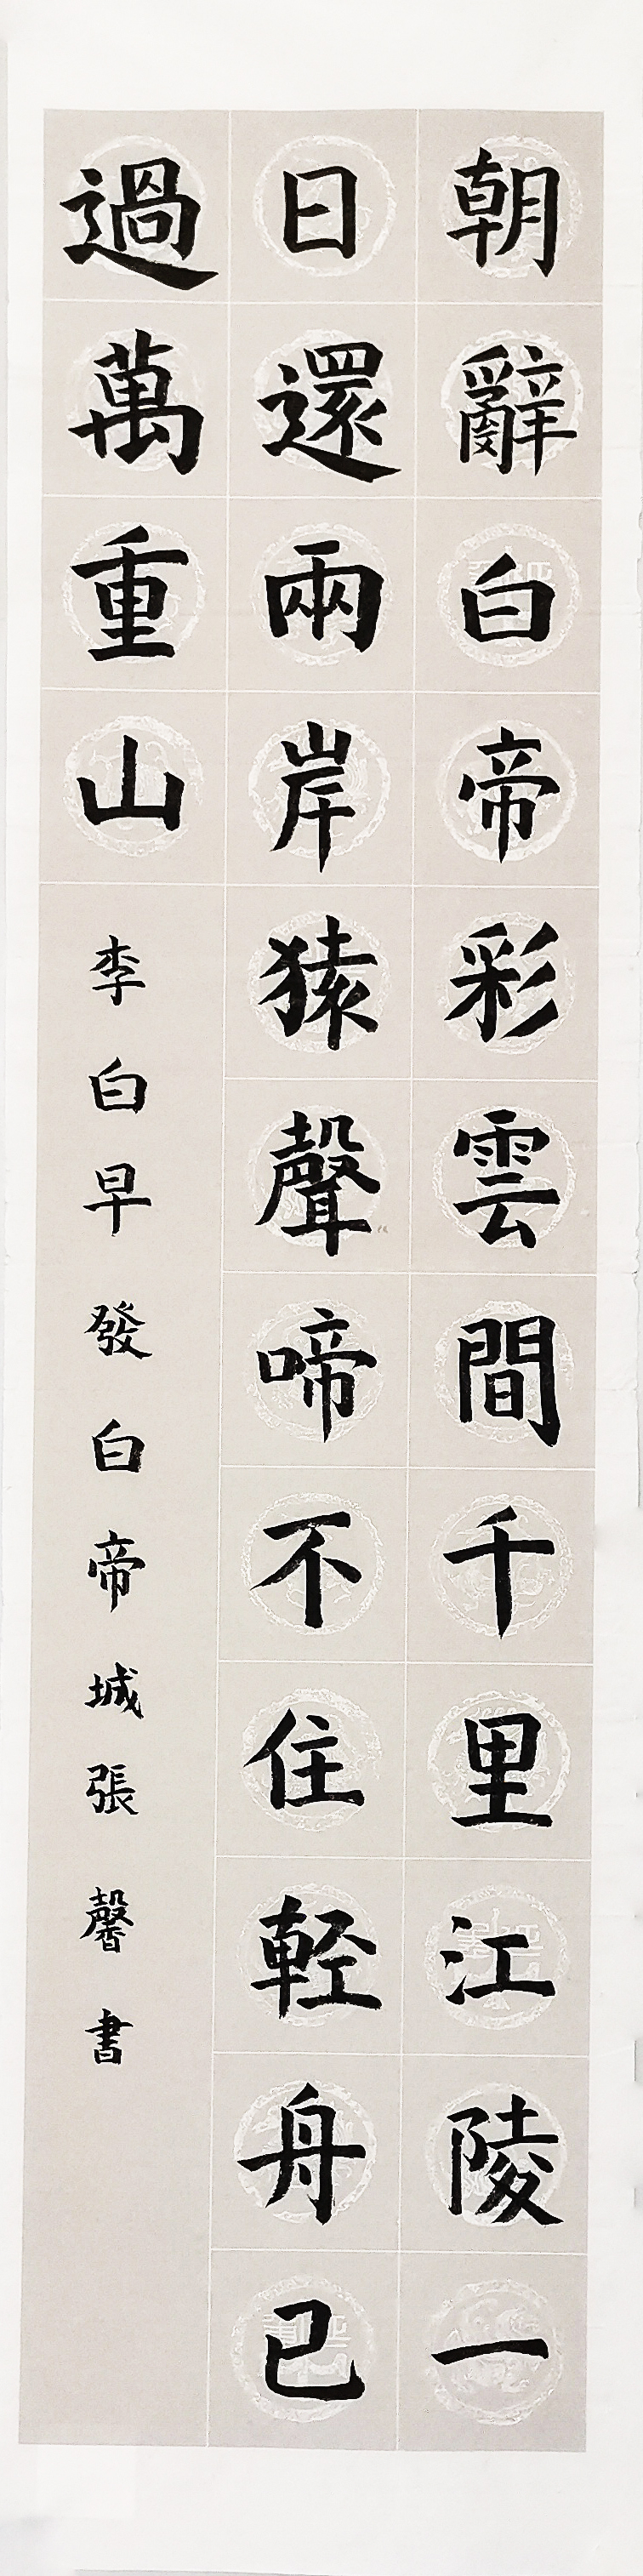 朝辭白帝彩雲間千里江陵一
日還兩岸猿聲啼不住輕舟已
過萬重山
李白早發白帝城張馨書